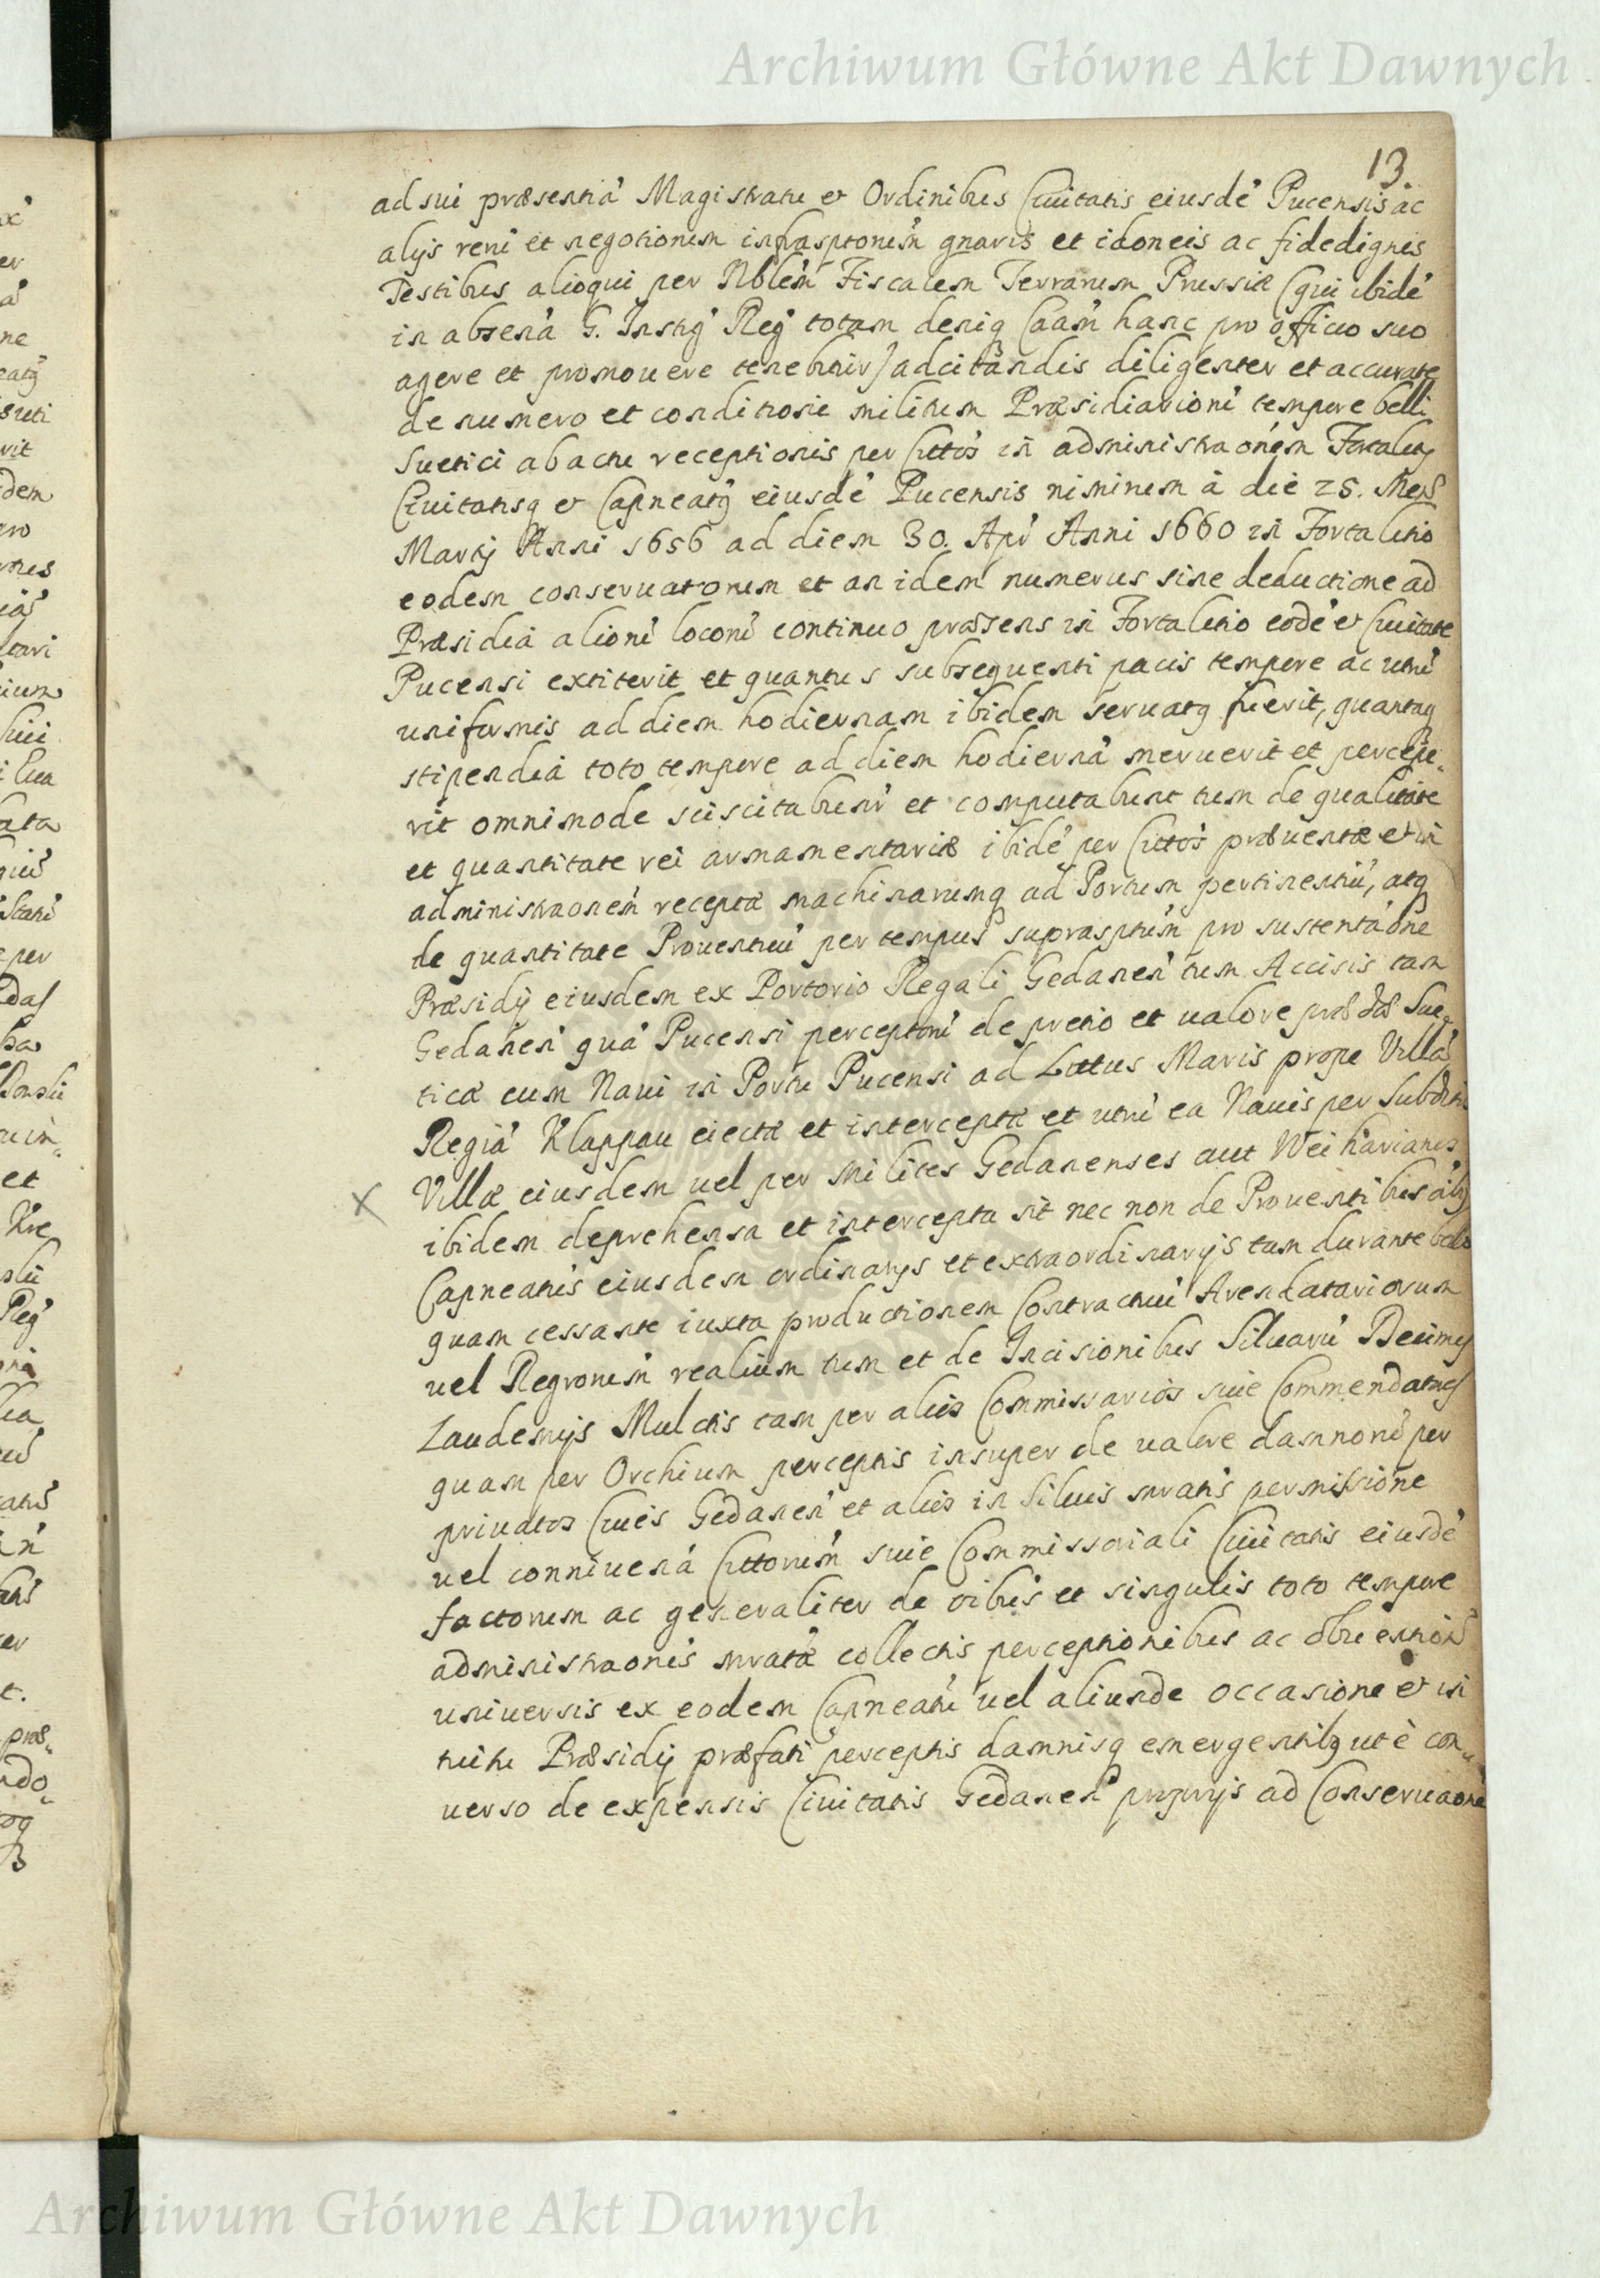 Archiwum Główne Akt Dawnych
13
ad sui præsentiá Magistratu et Ordinibus Ciuitatis eiusdé Pucensis ac
alijs rerú et negotiorum infrasptorum gnaris et idoneis ac fidedignis
Testibus alioqui per Nblem Fiscalem Terrarum Prussiæ (qui ibidé
in absená G. Instig Reg totam deniq Caam hanc pro officio suo
agere et promouere tenebitur) adcitandis diligenter et accurate
de numero et conditione militum Præsidiarioru tempore belli
Suetici ab actu receptionis per Cittos in administraonem Fortality
Ciuitatisq et Capneatg eiusdé Pucensis niminum à die 25. Mens
Martij Anni 1656 ad diem 30. Apr Anni 1660 in Fortalitio
eodem conseruatorum et an idem numerus sine deductione ad
Præsidia alioru locoru continuo præsens in Fortalitio eodé et Ciuitate
Pucensi extiterit et quantus subsequenti pacis tempore ac utru
uniformis ad diem hodiernam ibidem seruatg fuerit, quantaq
stipendia toto tempore ad diem hodierná meruerit et percepe-
rit omnimode sciscitabunr et computabunt tum de qualitate
et quantitate rei armamentariæ ibidé per Cittos præuentæ et in
administraonem receptæ machinarumq ad Portum pertinentiu, atq
de quantitate Prouentuu per tempus suprasptum pro sustentaone
Præsidij eiusdem ex Portorio Regali Gedanen tum Accisis tam
Gedanen quá Pucensi perceptoru de pretio et ualore Sue-
ticæ cum Naui in Portu Pucensi ad Littus Maris prope Villá
Regiá Klappau eiectæ et interceptæ et utru ea Nauis per Subditos
Villæ eiusdem uel per Milites Gedanenses aut Weiherianos
ibidem deprehensa et intercepta sit nec non de Prouentibus alijs
Capneatis eiusdem ordinarijs et extraordinarijs tam durante bello
quam cessante iuxta productionem Contractuu Arendatariorum
uel Regrorum realium tum et de Incisionibus Siluarú Decimis
Laudemijs Mulctis tam per alios Commissarios siue Commendatnes
quam per Orchium perceptis insuper de ualore damnorú per
priuatos Ciues Gedanen et alios in Siluis mratis permissione
uel conniuená Cittorum siue Commissoriali Ciuitatis eiusdé
factorum ac generaliter de oibus et singulis toto tempore
administraonis mratæ collectis perceptionibus ac obuention
uniuersis ex eodem Capneatu uel aliunde occasione et in
tuitu Præsidij præfati perceptis damnisq emergentibq ut è con-
uerso de expensis Ciuitatis Gedanen proprijs ad Conseruaoné
Archiwum Główne Akt Dawnych